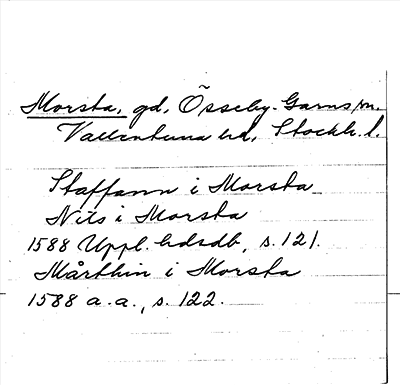 Morsta, gd, Össeby-Garns sn.
Vallentuna hd, Stockh. l.
Staffann i Morsta
Nils i Morsta
1588 Uppl. hdsdb, s. 121.
Mårthin i Morsta
1588 a. a., s. 122.